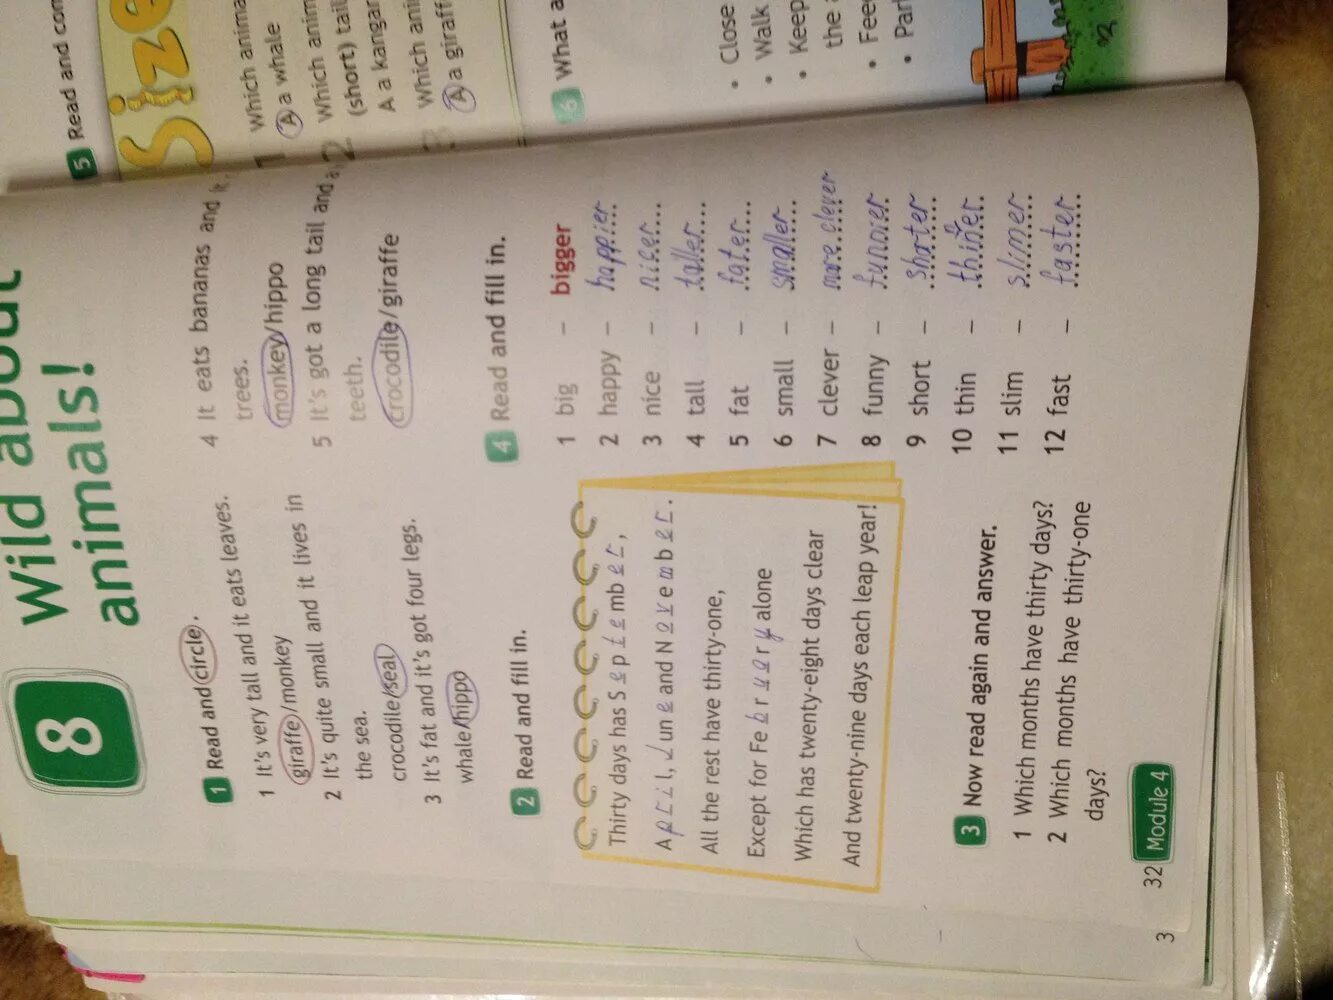 8
Wild about
animals!
1 Read and circle.
1 It's very tall and it eats leaves.
giraffe/monkey
2 It's quite small and it lives in
the sea.
crocodile/seal
3 It's fat and it's got four legs.
whale/hippo
4 It eats bananas and
trees.
monkey/hippo
5 It's got a long tail and
teeth.
crocodile/giraffe
2 Read and fill in.
Thirty days has September,
April, June and November.
All the rest have thirty-one,
Except for Febryary alone
Which has twenty-eight days clear
And twenty-nine days each leap year!
3 Now read again and answer.
1 Which months have thirty days?
2 Which months have thirty-one
days?
4 Read and fill in.
1 big – bigger
2 happy – happier
3 nice – nicer
4 tall – taller
5 fat – fater
6 small – smaller
7 clever – more clever
8 funny – funnier
9 short – shorter
10 thin – thiner
11 slim – slimer
12 fast – faster
32 Module 4
3
5 Read and com
Size
1 Which anima
A a whale
2 Which anim
(short) tail
A a kangar
3 Which ani
A a giraff
6 What a
• Close
• Walk
• Keep
the a
• Fee
• Par